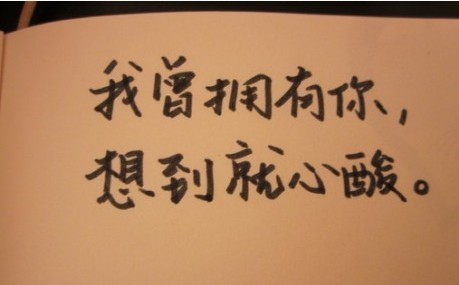 我曾拥有你，
想到就心酸。